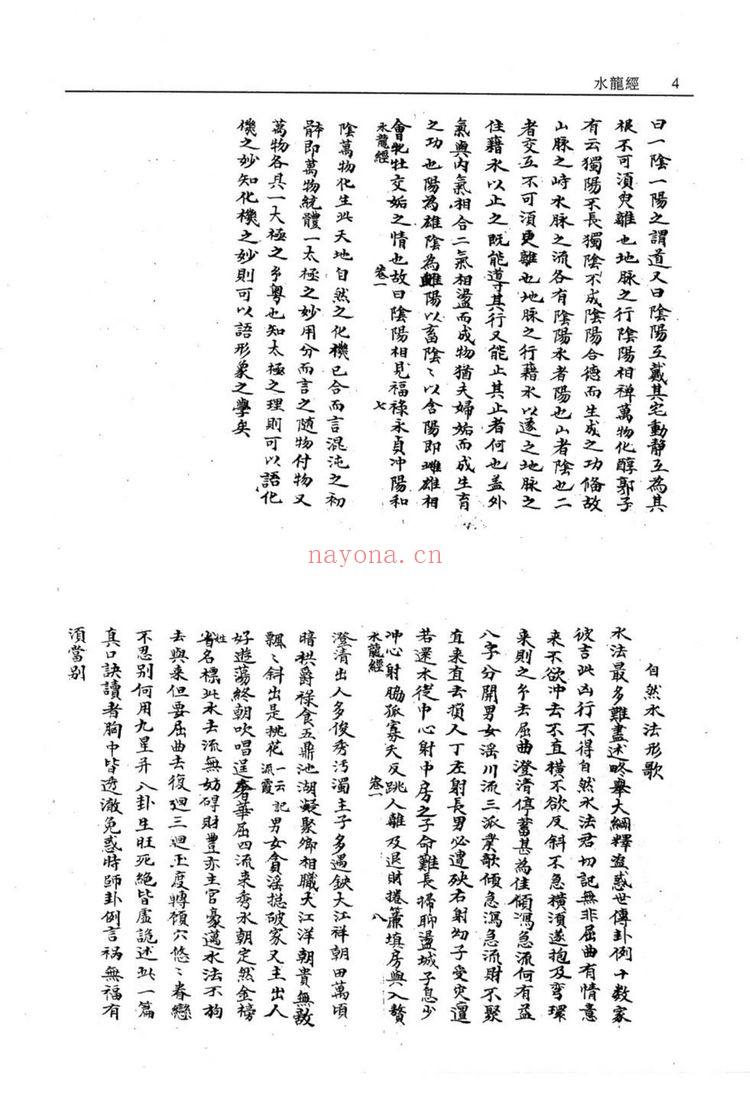 水龍經 4
曰一陰一陽之謂道又曰陰陽互藏其宅動靜互為其
根不可須臾離也地脉之行陰陽相禅萬物化醇郭子
有云獨陽不長獨陰不成陰陽合德而生成之功俻故
山脉之峙水脉之流各有陰陽水者陽也山者陰也二
者交互不可須臾離也地脉之行藉水以遂之地脉之
住藉水以止之既能導其行又能止其止者何也盖外
氣與內氣相合二氣相盪而成物犹夫婦姤而成生育
之功也陽為雄陰為雌陽以畜陰〻以含陽即雌雄相
會牝牡交姤之情也故曰陰陽相見福祿永貞冲陽和
水龍經 卷一 七
陰萬物化生此天地自然之化機已合而言混沌之初
骵即萬物統體一太極之妙用分而言之随物付物又
萬物各具一大極之多粤也知太極之理則可以語化
機之妙知化機之妙則可以語形象之學矣
nayona.cn
自然水法形歌
水法最多難盡述畧舉大綱釋迷惑世傳卦例十数家
彼吉此凶行不得自然水法君切記無非屈曲有情意
来不欲冲去不直橫不欲反斜不急橫須遶抱及弯環
来則之多去屈曲澄清停蓄甚為佳傾瀉急流何有益
八字分開男女淫川流三派業歇傾急瀉急流財不聚
直来直去損人丁左射長男必遭殃右射幼子受灾遭
若還水從中心射中房之子命難長掃聊盪城子息少
冲心射脇孤寡夭反跳人離及退財捲簾填房與入贅
水龍經 卷一 八
澄清出人多俊秀汚濁主子多遇鈌大江祥朝田萬頃
暗拱爵祿食五鼎池湖凝聚卿相職大江洋朝貴無敵
飄〻斜出是桃花 一云流霞 記男女貪淫挺破家又主出人
好遊蕩終朝吹唱逞奢華屈四流来秀水朝定然金榜
姓省名標此水去流無妨碍財豐亦主官豪邁水法不拘
去與来但要屈曲去復廻三廻五度轉顧穴悠〻眷戀
不忍别何用九星并八卦生旺死絕皆虛詭述此一篇
真口訣讀者胸中皆透澈免惑時師卦例言禍無福有
須當别